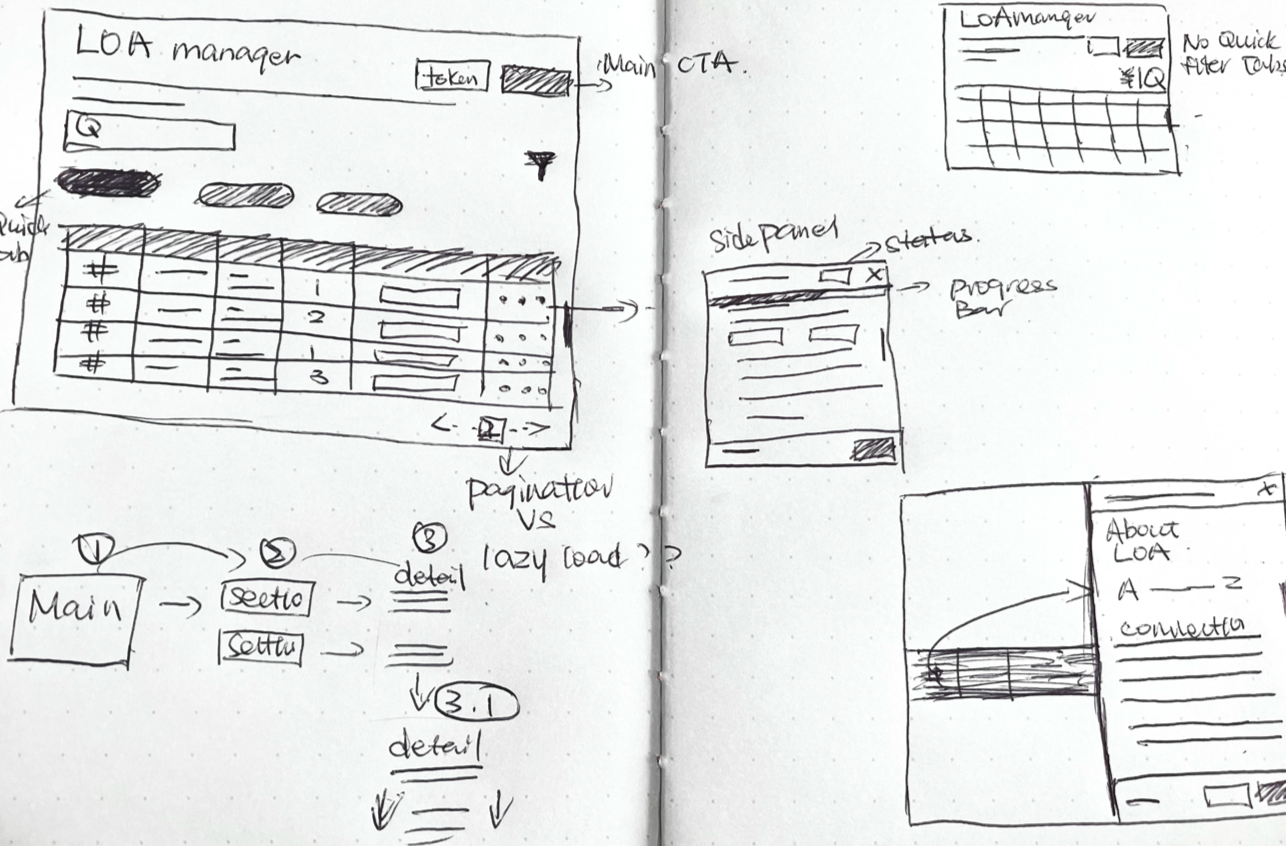 LOA manager
token
Main CTA.
Quick
Tab
#
1
#
2
#
1
#
3
2
pagination
VS
lazy load ??
1
2
3
Main
Sectio
detail
Settin
3.1
detail
LOAmanger
No Quick
filter Tabs
Side panel
Status.
X
progress
Bar
X
About
LOA
A — 2
connectin